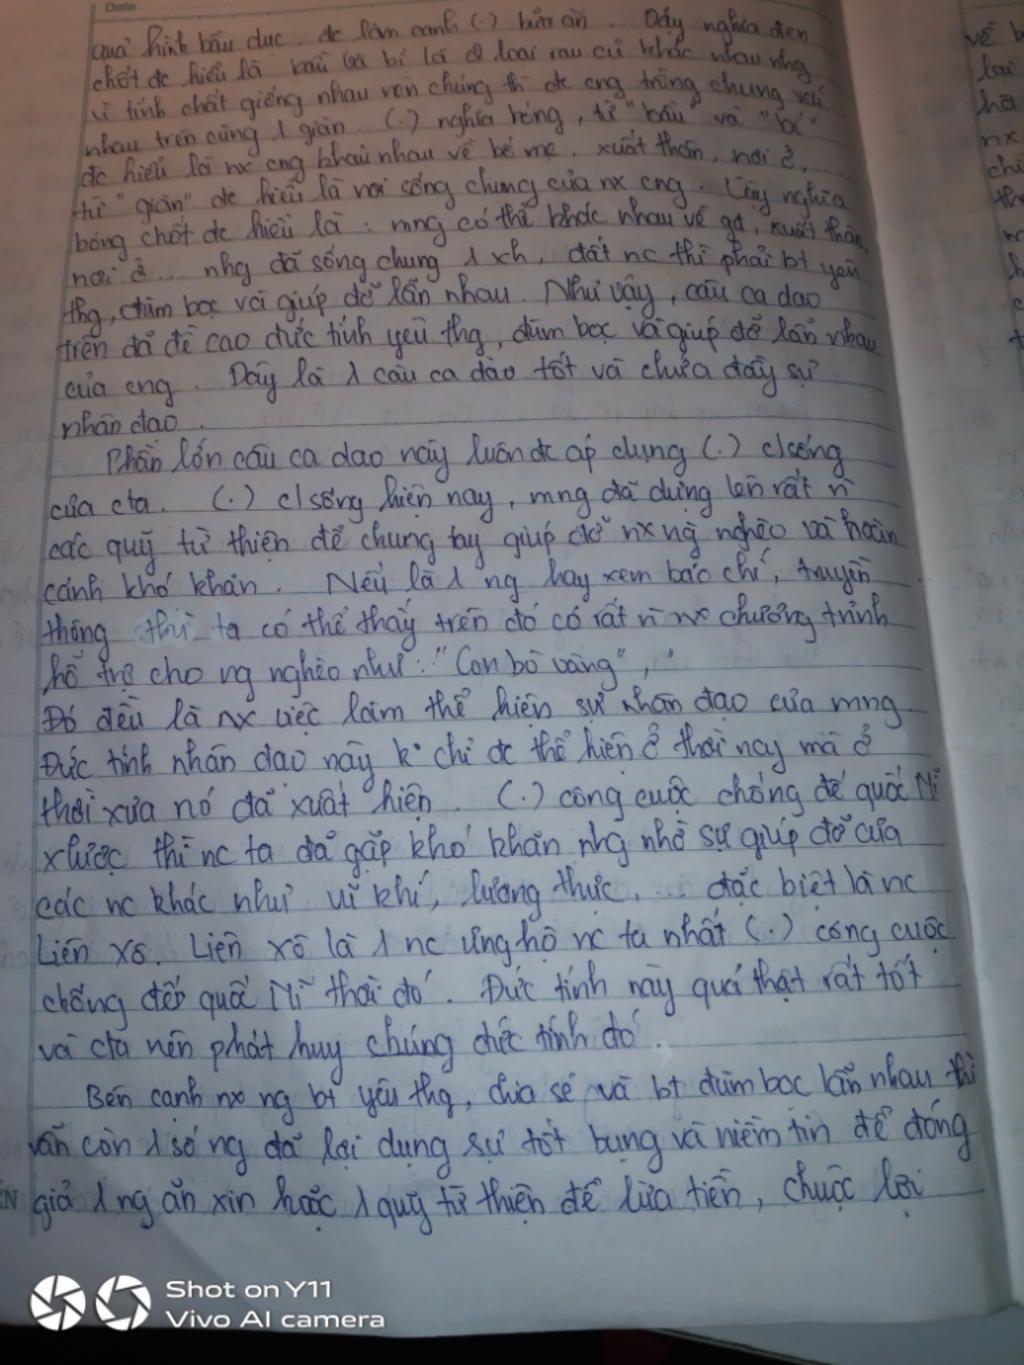 Date
quả hình bầu dục, đc làm canh (.) bữa ăn. Vậy nghĩa đen
chốt đc hiểu là bầu và bí là 2 loại rau củ khác nhau nhg
vì tính chất giống nhau nên chúng thì đc cng trồng chung với
nhau trên cùng 1 giàn. (.) nghĩa bóng, từ "bầu" và "bí"
đc hiểu là nx cng khác nhau về bố mẹ, xuất thân, nơi ở,
từ "giàn" đc hiểu là nơi sống chung của nx cng. Vậy nghĩa
bóng chốt đc hiểu là : mng có thể khác nhau về gđ, xuất thân,
nơi ở... nhg đã sống chung 1 xh, đất nc thì phải bt yêu
thg, đùm bọc và giúp đỡ lẫn nhau. Như vậy, câu ca dao
trên đã đề cao đức tính yêu thg, đùm bọc và giúp đỡ lẫn nhau
của cng. Đây là 1 câu ca dao tốt và chứa đầy sự
nhân đạo.
Phần lớn câu ca dao này luôn đc áp dụng (.) c/sống
của cta. (.) c/sống hiện nay, mng đã dựng lên rất n
các quỹ từ thiện để chung tay giúp đỡ nx ng nghèo và hoàn
cảnh khó khăn. Nếu là 1 ng hay xem báo chí, truyền
thông thì ta có thể thấy trên đó có rất n nx chương trình
hỗ trợ cho ng nghèo như: "Con bò vàng",
Đó đều là nx việc làm thể hiện sự nhân đạo của mng
Đức tính nhân đạo này k chỉ đc thể hiện ở thời nay mà ở
thời xưa nó đã xuất hiện. (.) công cuộc chống đế quốc Mĩ
xlược thì nc ta đã gặp khó khăn nhg nhờ sự giúp đỡ của
các nc khác như vũ khí, lương thực,... đặc biệt là nc
Liên Xô. Liên xô là 1 nc ủng hộ nc ta nhất (.) công cuộc
chống đếp quốc Mĩ thời đó. Đức tính này quả thật rất tốt
và cta nên phát huy chúng đức tính đó.
Bên cạnh nx ng bt yêu thg, chia sẻ và bt đùm bọc lẫn nhau thì
vẫn còn 1 số ng đã lợi dụng sự tốt bụng và niềm tin để đóng
giả 1 ng ăn xin hoặc 1 quỹ từ thiện để lừa tiền, chuộc lợi
Shot on Y11
Vivo AI camera